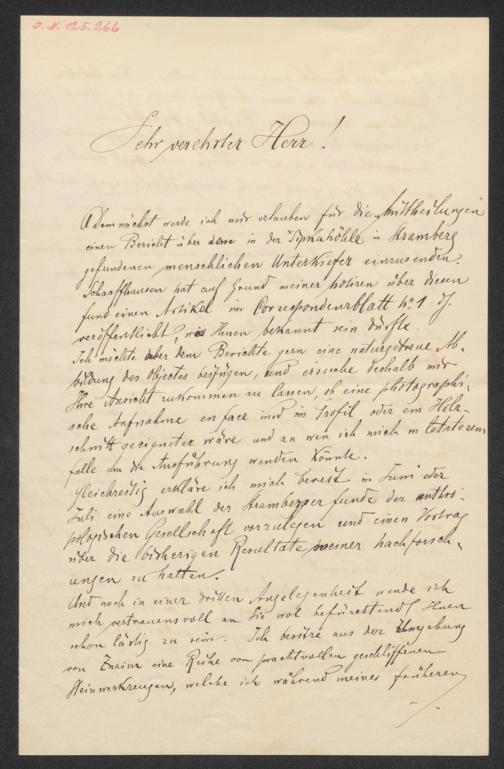 J. N. 125.266
Sehr verehrter Herr!
Demnächst werde ich mir erlauben für die Mittheilungen
einen Bericht über den in der Šipkahöhle in Stramberg
gefundenen menschlichen Unterkiefer einzusenden.
Schaaffhausen hat auf Grund meiner Notizen über diesen
Fund einen Artikel im Correspondenzblatt No 1 d J.
veröffentlicht, was Ihnen bekannt sein dürfte.
Ich möchte aber dem Berichte gern eine naturgetreue Ab-
bildung des Objectes beifügen, und ersuche deshalb mir
Ihre Ansicht zukommen zu lassen, ob eine photographi-
sche Aufnahme en face und im Profil oder ein Holz-
schnitt geeigneter wäre und an wen ich mich in letzterem
falle um die Ausführung wenden könnte.
Gleichzeitig erkläre ich mich bereit im Juni oder
Juli eine Auswahl der Stramberger funde der anthro-
pologischen Gesellschaft vorzulegen und einen Vortrag
über die bisherigen Resultate meiner Nachforsch-
ungen zu halten.
Und noch in einer dritten Angelegenheit wende ich
mich vertrauensvoll an Sie wol befürchtend Ihnen
schon lästig zu sein. Ich besitze aus der Umgebung
von Znaim eine Reihe von prachtvollen geschliffenen
Steinwerkzeugen, welche ich während meines früheren